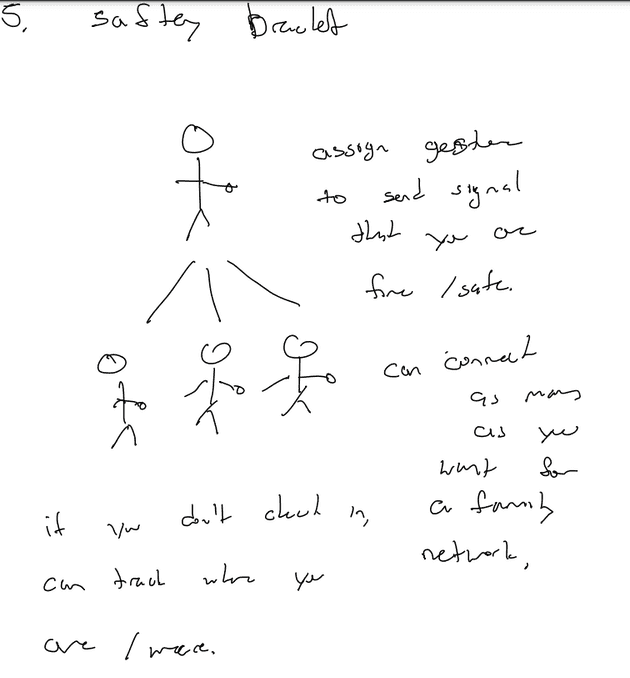 5. saftey braclet
assign gesture
to send signal
that you are
fine /safe.
can connect
as many
as you
want for
a family
network,
if you don't check in,
can track where you
are / were.